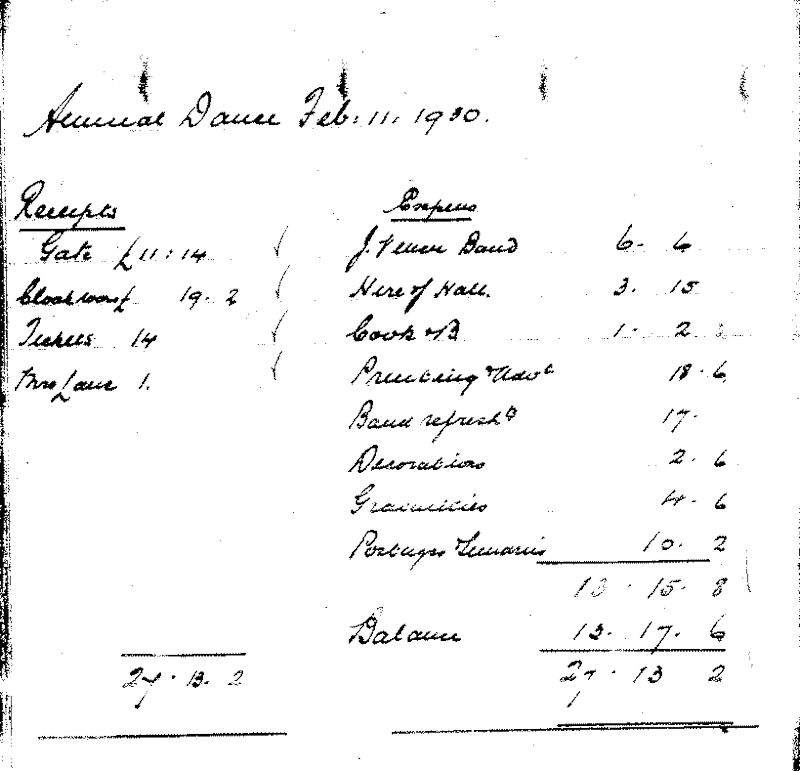 Annual Dance Feb. 11. 1930.
Receipts
Gate £11 : 14
Cloakrooms £ 19. 2
Tickets 14
1.
27. 13. 2
Expens
J. Band 6. 6
Hire of Hall. 3. 15
1. 2
Printing & Advt 18. 6
Band refresh 17.
Decorations 2. 6
Gratuities 4. 6
Postages 10. 2
13. 15. 8
Balance 13. 17. 6
27. 13 2